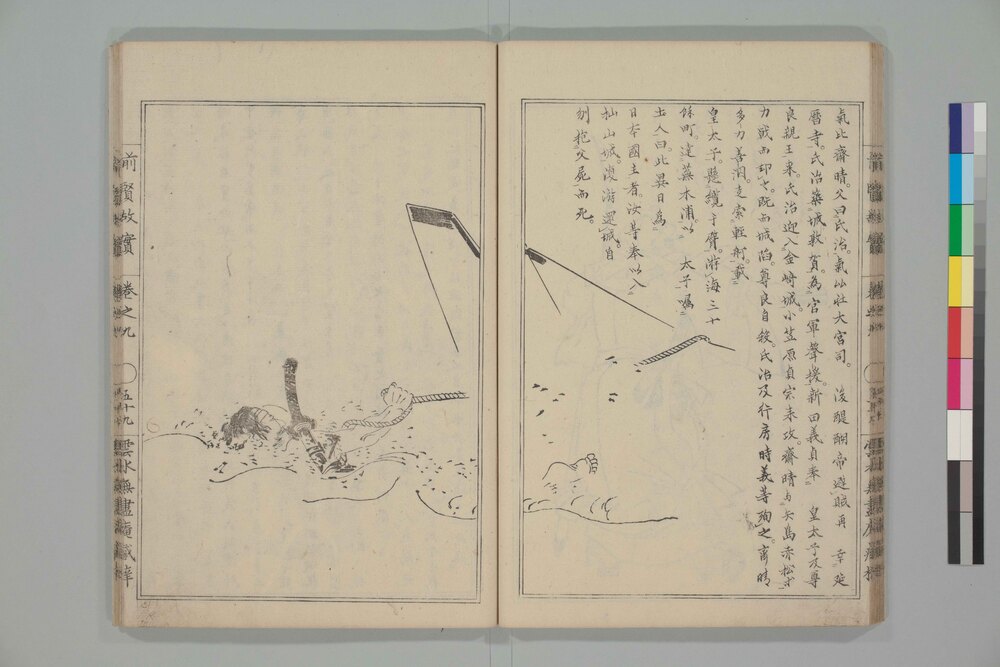 氣比齋晴。父曰氏治。氣比社大宮司。後醍醐帝避賊再 幸延
曆寺。氏治築城敦賀。為官軍聲援。新田義貞奉 皇太子及尊
良親王來。氏治迎入金崎城。小笠原貞宗來攻。齋晴与矢島赤松
力戰而却之。既而城陷。尊良自殺。氏治及行房時義等殉之。齋晴
多力善泅。走索輕舸。載
皇太子。懸纜于臂。游海三十
餘町。達蕪木浦。以 太子囑
土人曰此異日為
日本國主者。汝等奉以入
杣山城。復游還城。自
刎抱父屍而死。
前賢故實
卷之九
五十九
雲水無盡庵藏梓